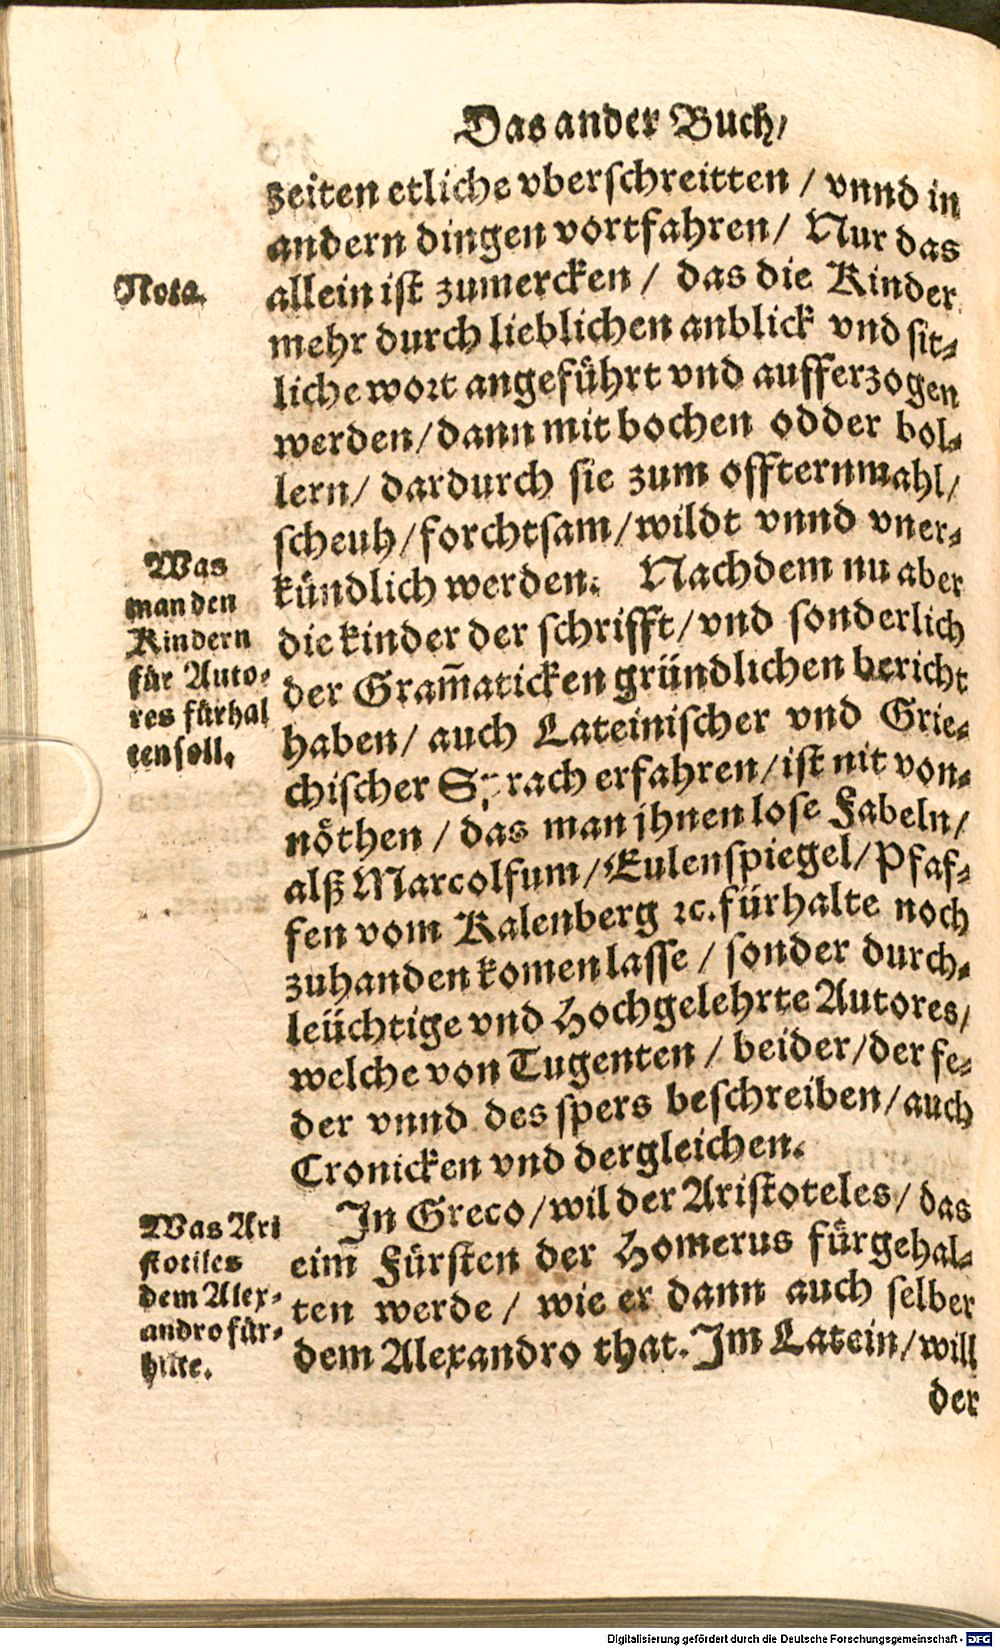 Das ander Buch/
zeiten etliche vberschreitten / vnnd in
andern dingen vortfahren/ Nur das
Nota.
allein ist zumercken / das die Kinder
mehr durch lieblichen anblick vnd sit⸗
liche wort angeführt vnd aufferzogen
werden/dann mit bochen odder bol⸗
lern/ dardurch sie zum offternmahl/
scheuh/forchtsam/wildt vnnd vner⸗
kündlich werden. Nachdem nu aber
Was
man den
Kindern
für Auto⸗
res fürhal
ten soll.
die kinder der schrifft/vnd sonderlich
der Gram̃aticken gründlichen bericht
haben/ auch Lateinischer vnd Grie⸗
chischer Sprach erfahren/ist nit von⸗
nöthen / das man jhnen lose Fabeln/
alß Marcolfum/Eulenspiegel/Pfaf⸗
fen vom Kalenberg ꝛc. fürhalte noch
zuhanden komen lasse / sonder durch⸗
leüchtige vnd Hochgelehrte Autores/
welche von Tugenten / beider/der fe⸗
der vnnd des spers beschreiben/auch
Cronicken vnd dergleichen.
In Greco/wil der Aristoteles/ das
Was Ari
stotiles
dem Alex⸗
andro für⸗
hilte.
eim Fürsten der Homerus fürgehal⸗
ten werde / wie er dann auch selber
dem Alexandro that. Im Latein/will
der
Digitalisierung gefördert durch die Deutsche Forschungsgemeinschaft - DFG